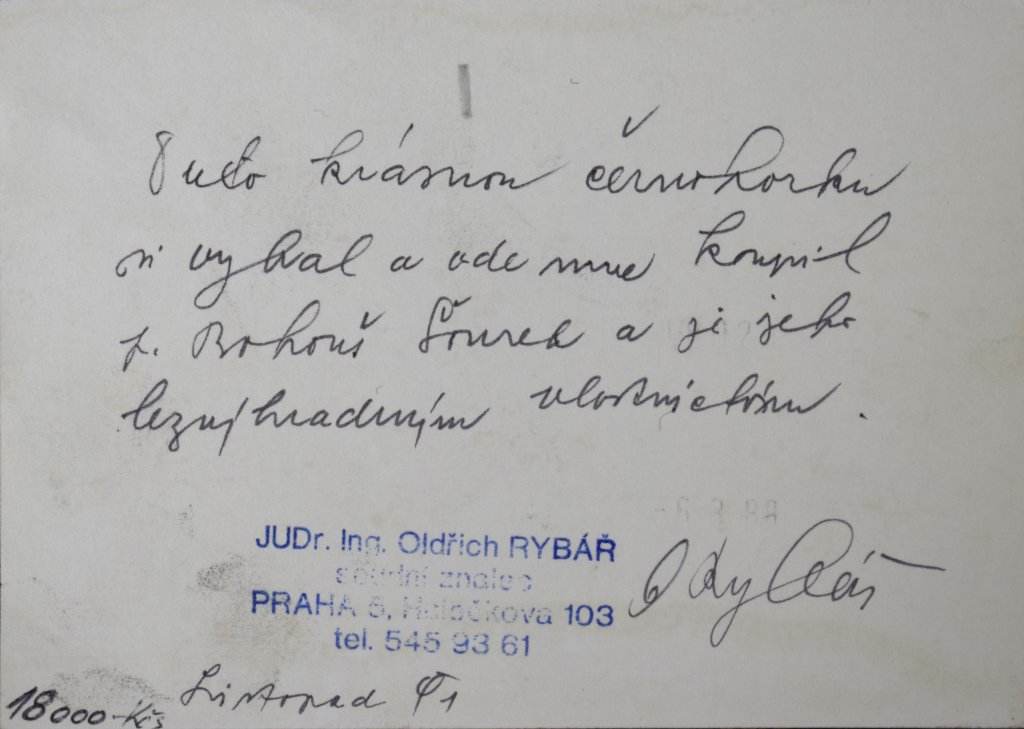 Tuto krásnou černohorku
si vybral a ode mne koupil
p. Bohouš Šourek a je jeho
bezvýhradným vlastnictvím.
-6.3.88
JUDr. Ing. Oldřich RYBÁŘ
soudní znalec
PRAHA 5, Holečkova 103
tel. 545 93 61
O Rybář
Listopad 91
18000 Kčs